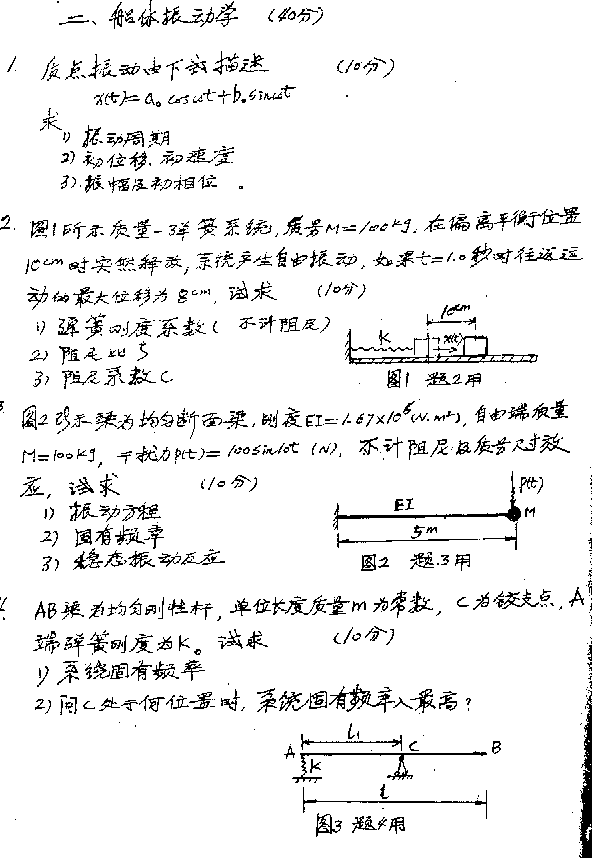 二、船体振动学 (40分)
1. 质点振动由下式描述 (10分)
x(t)=a₀cosωt+b₀sinωt
求
1) 振动周期
2) 初位移、初速度
3) 振幅及初相位。
2. 图1所示质量-弹簧系统,质量M=100kg,在偏离平衡位置
10cm时突然释放,系统产生自由振动,如果t=1.0秒时往返运
动的最大位移为8cm,试求 (10分)
1) 弹簧刚度系数(不计阻尼)
2) 阻尼比ζ
3) 阻尼系数C
10cm
K
x(t)
图1 题2用
3 图2所示梁为均匀断面梁,刚度EI=1.67×10⁶(N·m²),自由端质量
M=100kg,干扰力P(t)=100sin10t (N),不计阻尼及质量尺寸效
应,试求 (10分)
1) 振动方程
2) 固有频率
3) 稳态振动反应
P(t)
EI
M
5m
图2 题3用
4. AB梁为均匀刚性杆,单位长度质量m为常数,C为铰支点,A
端弹簧刚度为K。试求 (10分)
1) 系统固有频率
2) 问C处于何位置时,系统固有频率入最高?
l₁
A
C
B
K
l
图3 题4用